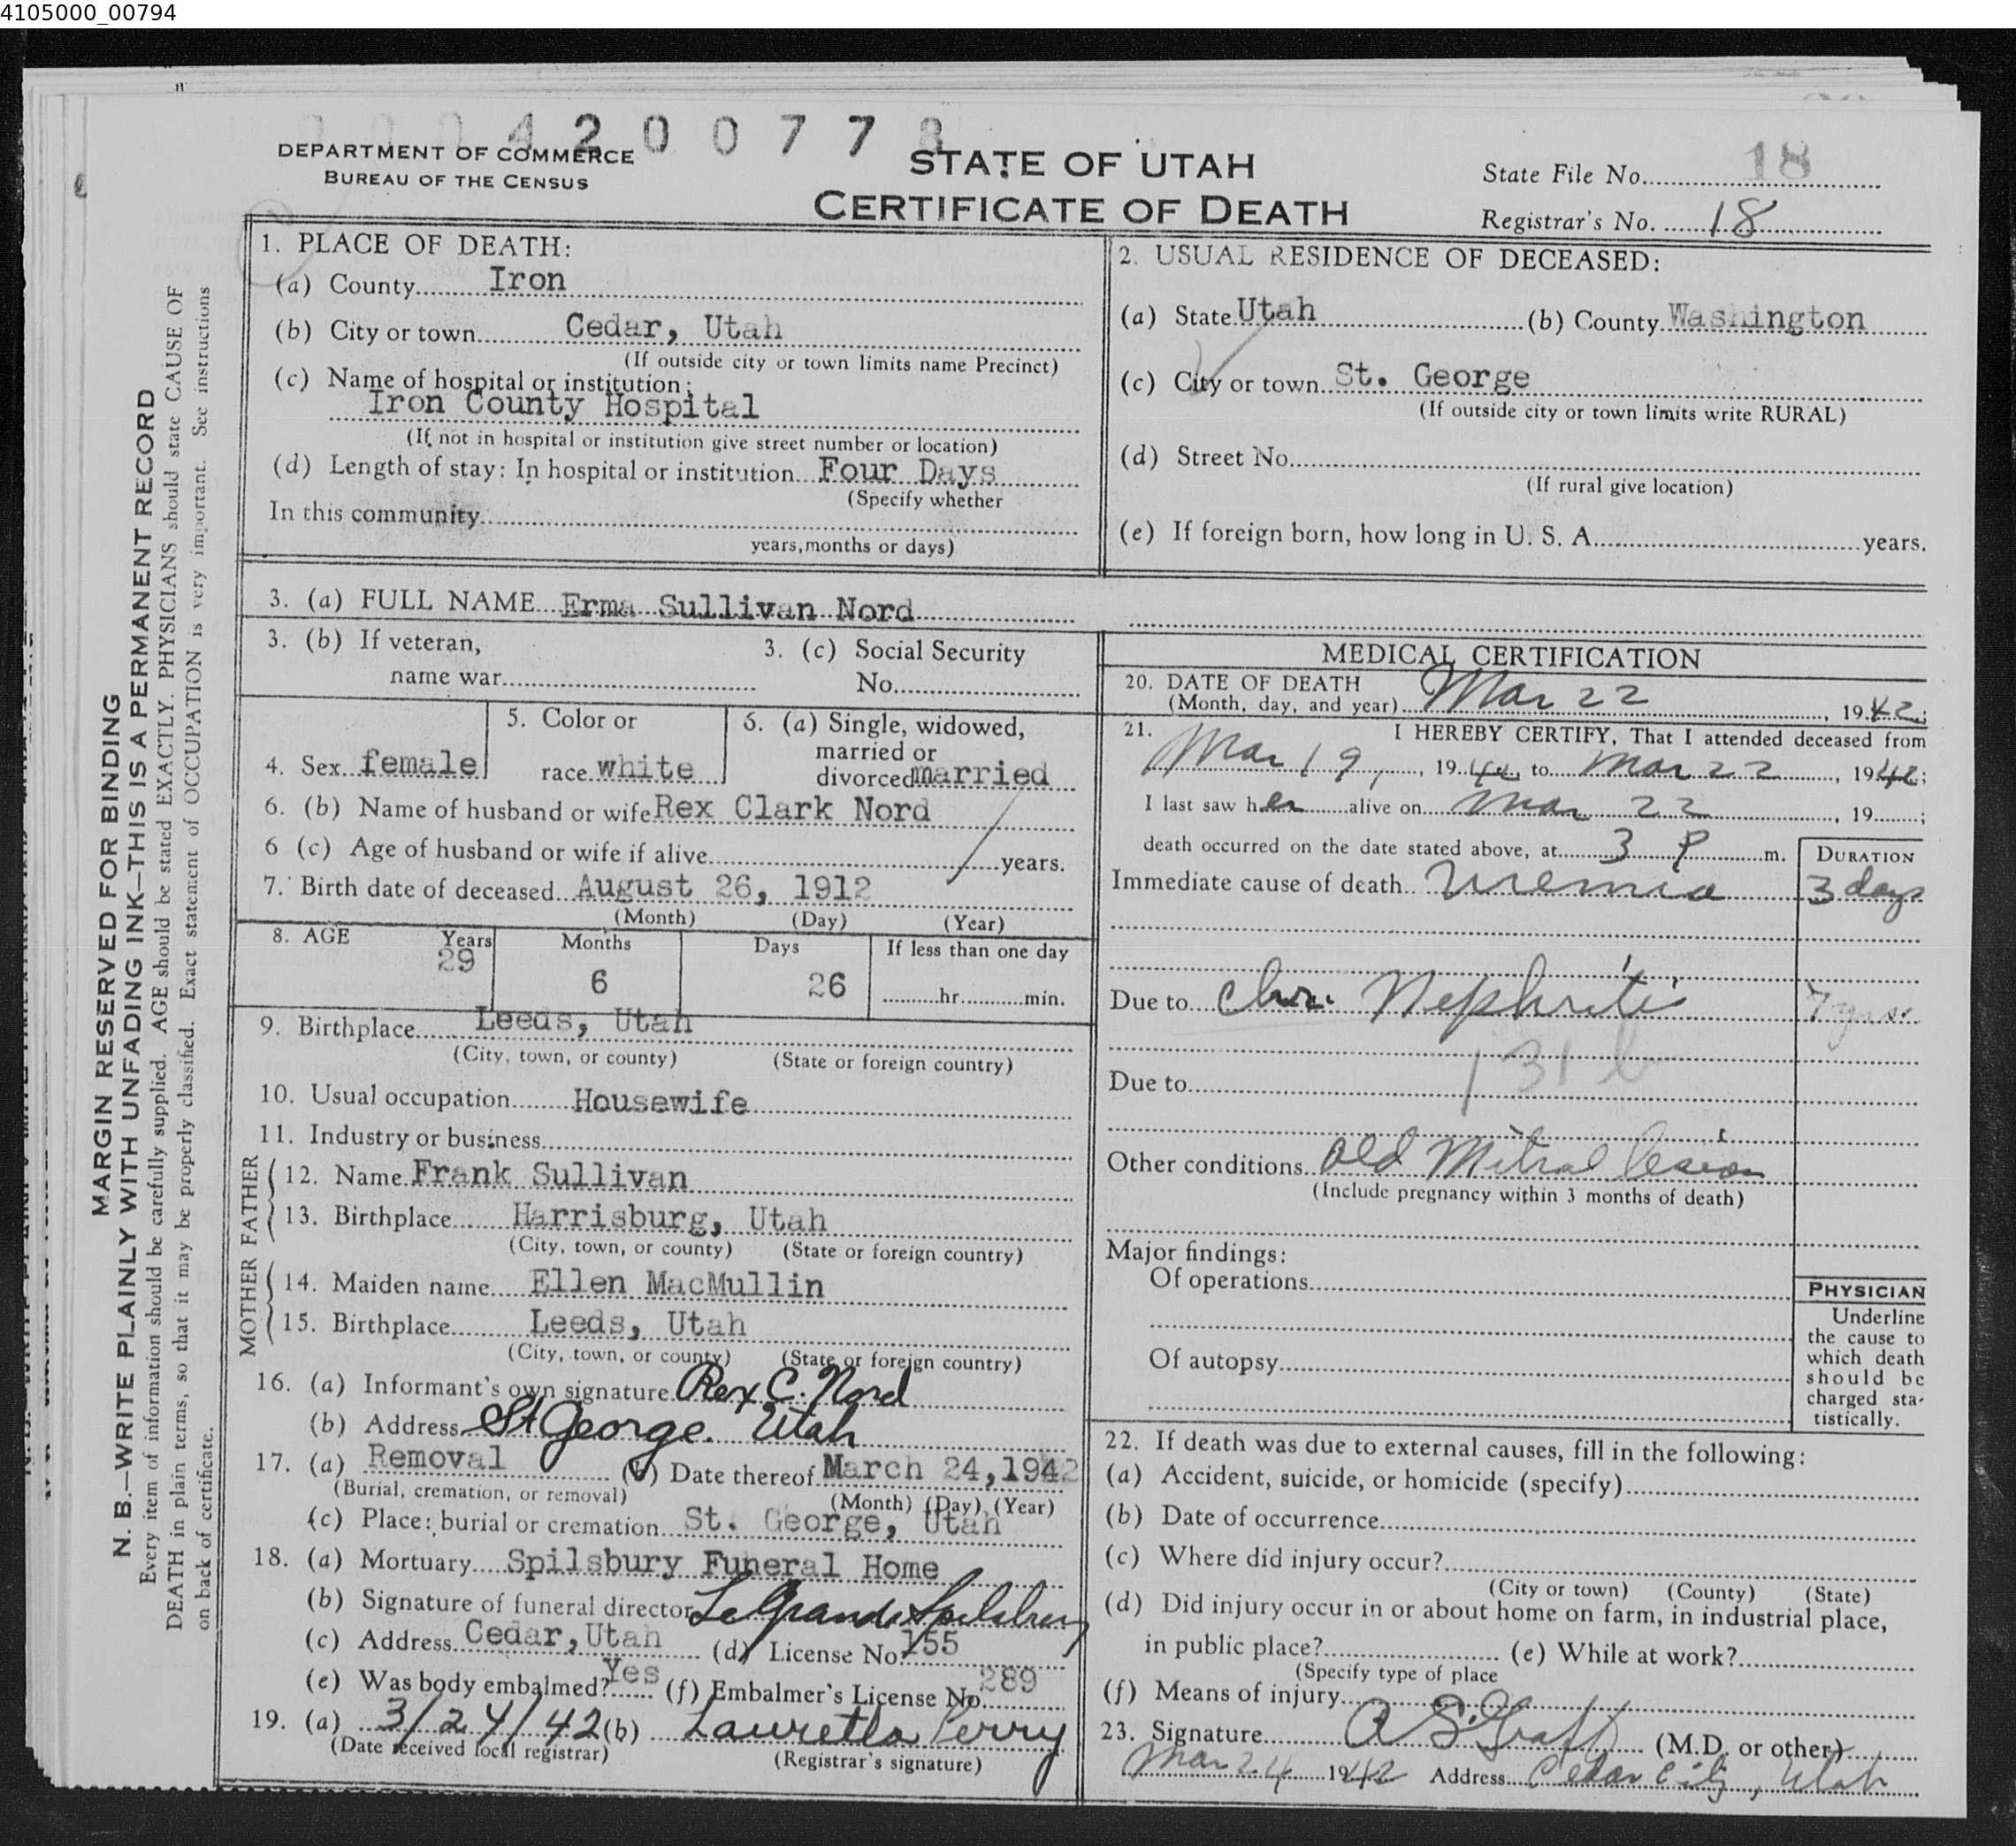 4105000_00794
4 2 0 0 7 7 8
DEPARTMENT OF COMMERCE
BUREAU OF THE CENSUS
STATE OF UTAH
CERTIFICATE OF DEATH
State File No. 18
Registrar's No. 18
MARGIN RESERVED FOR BINDING
N. B.—WRITE PLAINLY WITH UNFADING INK—THIS IS A PERMANENT RECORD
Every item of information should be carefully supplied. AGE should be stated EXACTLY. PHYSICIANS should state CAUSE OF
DEATH in plain terms, so that it may be properly classified. Exact statement of OCCUPATION is very important. See instructions
on back of certificate.
1. PLACE OF DEATH:
(a) County Iron
(b) City or town Cedar, Utah
(If outside city or town limits name Precinct)
(c) Name of hospital or institution:
Iron County Hospital
(If not in hospital or institution give street number or location)
(d) Length of stay: In hospital or institution Four Days
(Specify whether
In this community
years, months or days)
2. USUAL RESIDENCE OF DECEASED:
(a) State Utah (b) County Washington
(c) City or town St. George
(If outside city or town limits write RURAL)
(d) Street No.
(If rural give location)
(e) If foreign born, how long in U. S. A. years.
3. (a) FULL NAME Erma Sullivan Nord
3. (b) If veteran,
name war
3. (c) Social Security
No.
4. Sex female
5. Color or
race white
6. (a) Single, widowed,
married or
divorced married
6. (b) Name of husband or wife Rex Clark Nord
6 (c) Age of husband or wife if alive years.
7. Birth date of deceased August 26, 1912
(Month) (Day) (Year)
8. AGE Years 29 Months 6 Days 26 If less than one day
hr. min.
9. Birthplace Leeds, Utah
(City, town, or county) (State or foreign country)
10. Usual occupation Housewife
11. Industry or business
FATHER
12. Name Frank Sullivan
13. Birthplace Harrisburg, Utah
(City, town, or county) (State or foreign country)
MOTHER
14. Maiden name Ellen MacMullin
15. Birthplace Leeds, Utah
(City, town, or county) (State or foreign country)
16. (a) Informant's own signature Rex C. Nord
(b) Address St George. Utah
17. (a) Removal (b) Date thereof March 24, 1942
(Burial, cremation, or removal) (Month) (Day) (Year)
(c) Place: burial or cremation St. George, Utah
18. (a) Mortuary Spilsbury Funeral Home
(b) Signature of funeral director LeGrande Spilsbury
(c) Address Cedar, Utah (d) License No. 155
(e) Was body embalmed? Yes (f) Embalmer's License No. 289
19. (a) 3/24/42 (b) Lauretta Perry
(Date received local registrar) (Registrar's signature)
MEDICAL CERTIFICATION
20. DATE OF DEATH
(Month, day, and year) Mar 22, 1942;
21. I HEREBY CERTIFY, That I attended deceased from
Mar 19, 1942, to Mar 22, 1942;
I last saw her alive on Mar 22, 19 ;
death occurred on the date stated above, at 3 P m.
DURATION
Immediate cause of death Uremia 3 days
Due to Chr. Nephritis 7 yrs.
131 b
Due to
Other conditions Old Mitral lesion
(Include pregnancy within 3 months of death)
Major findings:
Of operations
Of autopsy
PHYSICIAN
Underline
the cause to
which death
should be
charged sta-
tistically.
22. If death was due to external causes, fill in the following:
(a) Accident, suicide, or homicide (specify)
(b) Date of occurrence
(c) Where did injury occur?
(City or town) (County) (State)
(d) Did injury occur in or about home on farm, in industrial place,
in public place? (e) While at work?
(Specify type of place
(f) Means of injury
23. Signature A S. Graff (M.D. or other)
Mar 24 1942 Address Cedar City, Utah